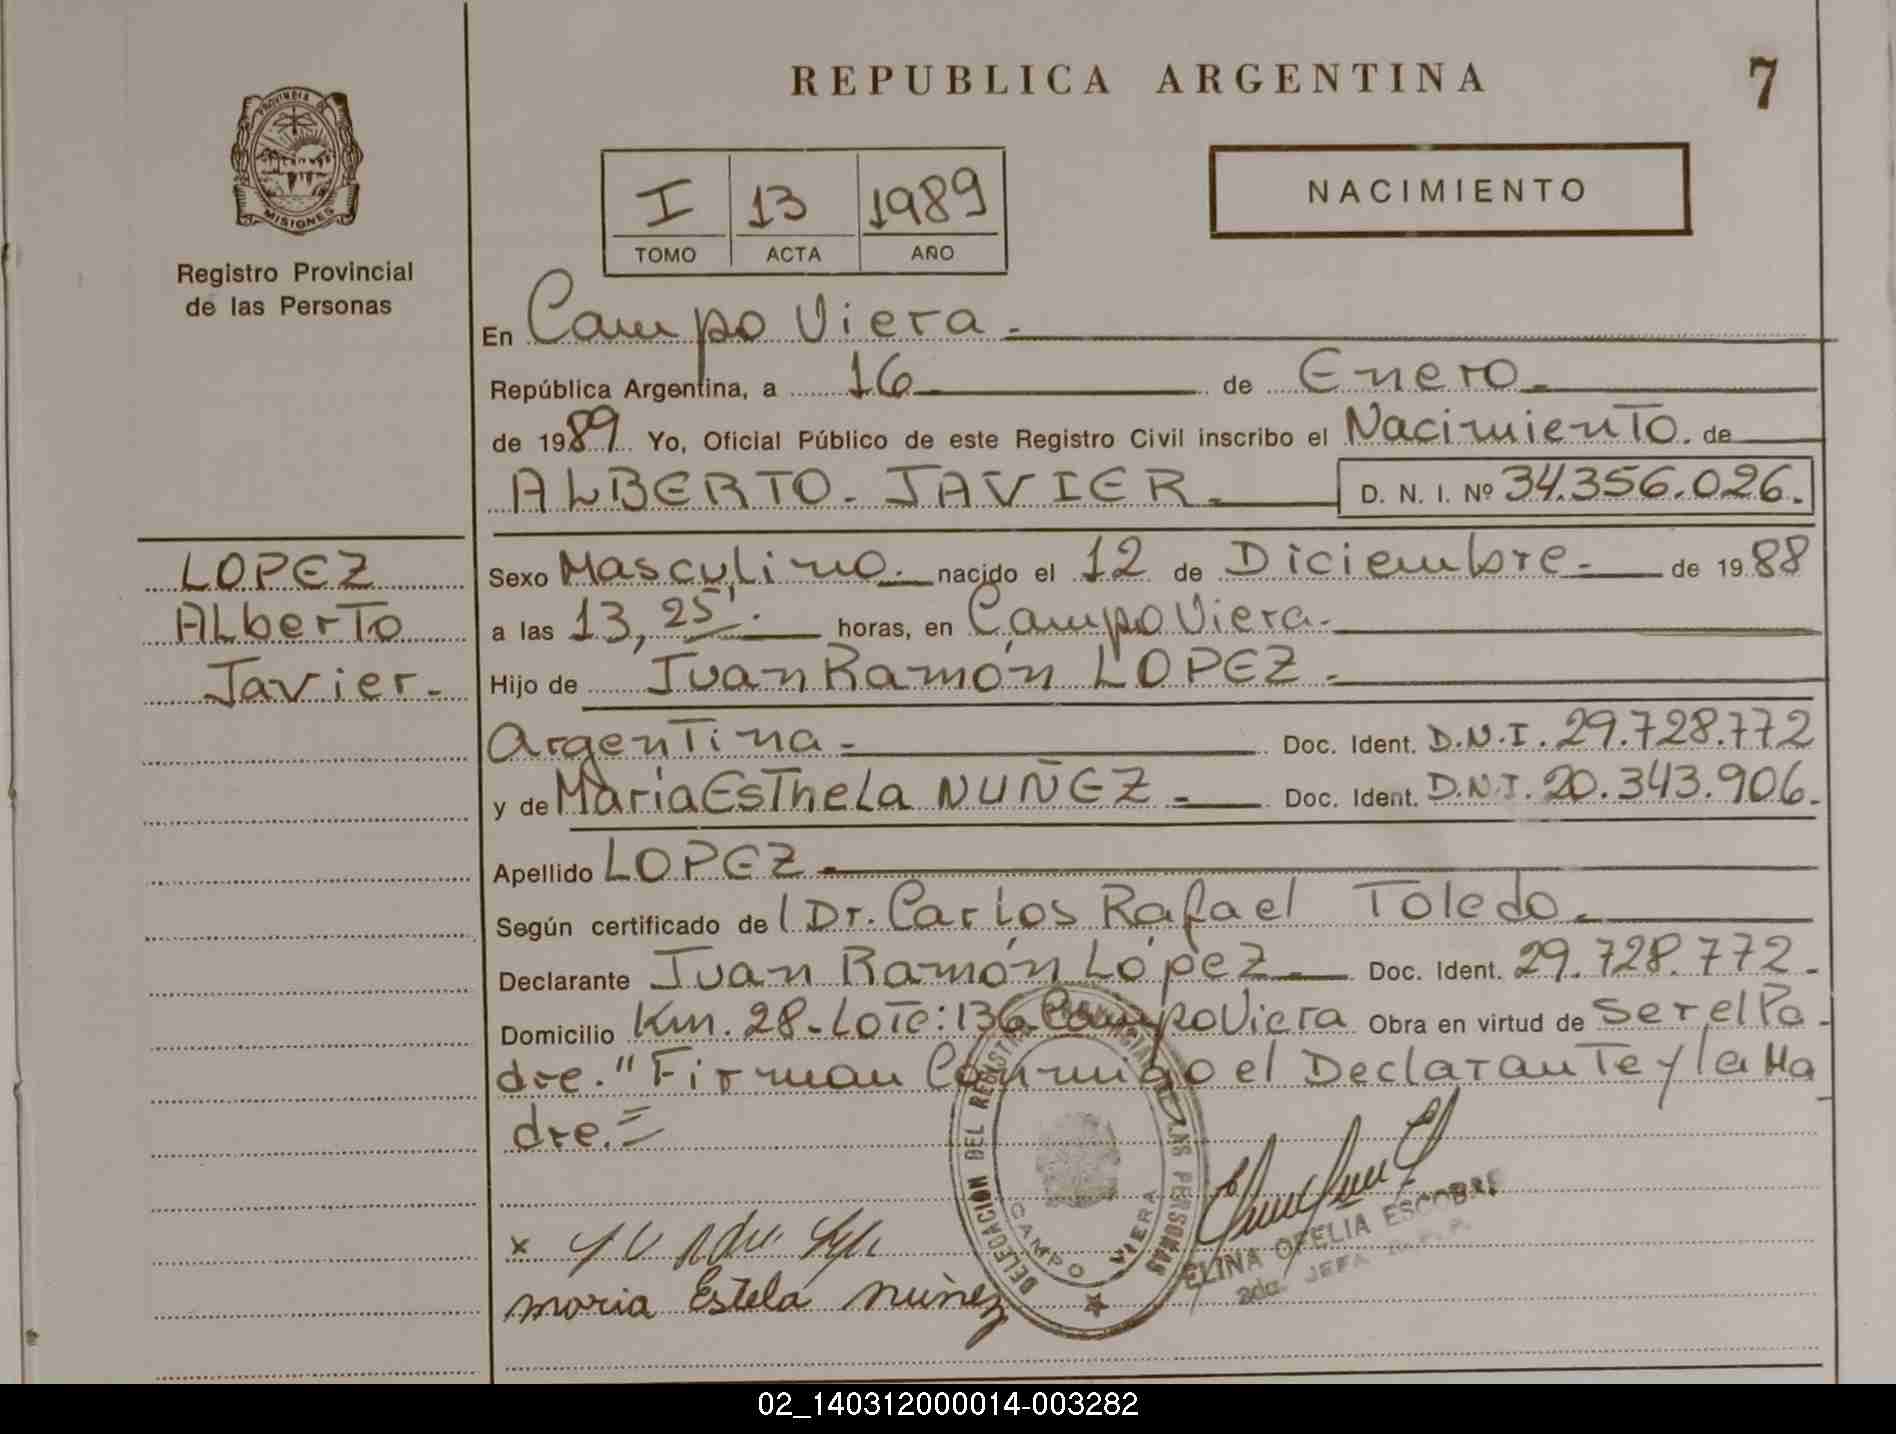 REPUBLICA ARGENTINA
7
PROVINCIA DE
MISIONES
Registro Provincial
de las Personas
I 13 1989
TOMO ACTA AÑO
NACIMIENTO
En Campo Viera.
República Argentina, a 16 de Enero.
de 1989 Yo, Oficial Público de este Registro Civil inscribo el Nacimiento. de
ALBERTO. JAVIER. D. N. I. Nº 34.356.026.
LOPEZ
Alberto
Javier.
Sexo Masculino. nacido el 12 de Diciembre. de 1988
a las 13, 25'. horas, en Campo Viera.
Hijo de Juan Ramón LOPEZ.
Argentina. Doc. Ident. D.N.I. 29.728.772
y de María Esthela NUÑEZ. Doc. Ident. D.N.I. 20.343.906.
Apellido LOPEZ
Según certificado de Dr. Carlos Rafael Toledo.
Declarante Juan Ramón López. Doc. Ident. 29.728.772.
Domicilio Km. 28. Lote: 136 Campo Viera Obra en virtud de ser el Pa
dre." Firman Conmigo el Declarante y la Ma
dre.=
DELEGACIÓN DEL REGISTRO PROVINCIAL DE LAS PERSONAS
CAMPO VIERA
ELINA OFELIA ESCOBAR
2da. JEFA
x
maria Estela nuñez
02_140312000014-003282